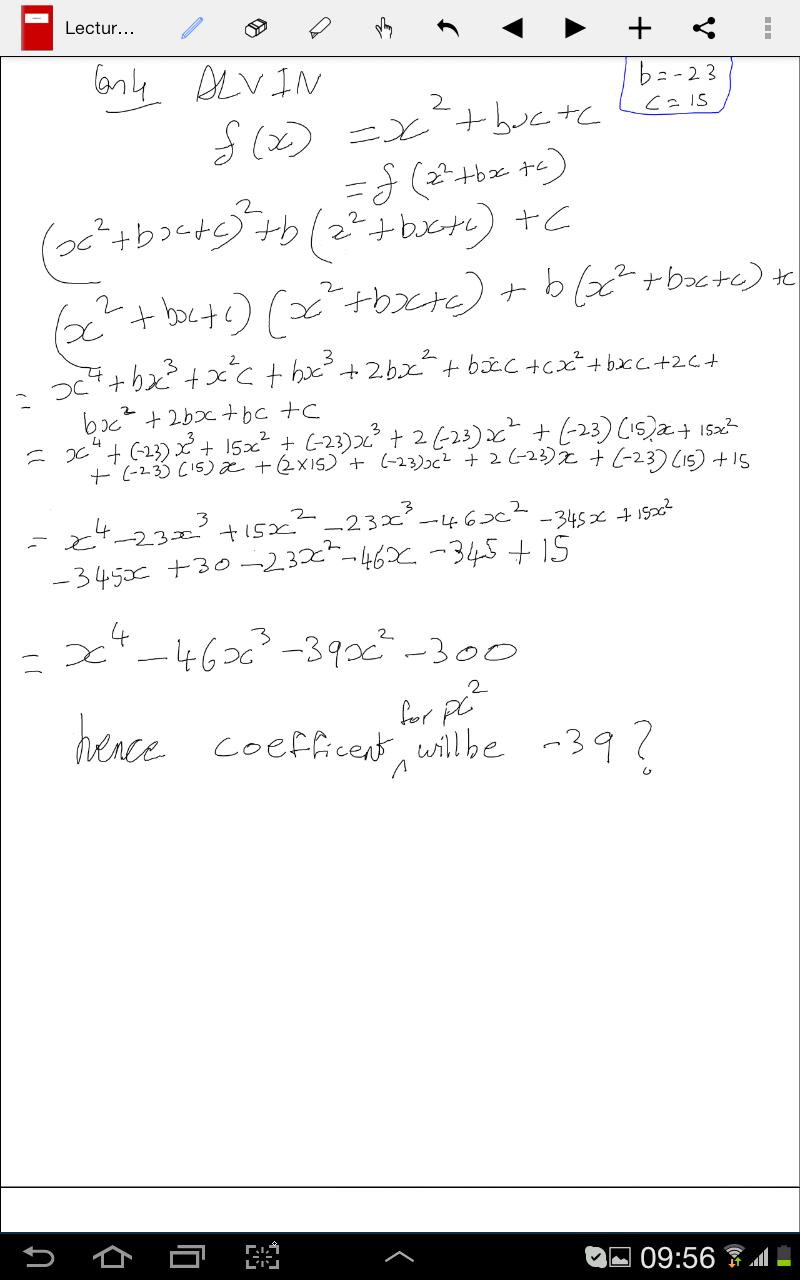 Lectur...
Qn4 ALVIN
b = -23
c = 15
f(x) = x² + bx + c
= f(x² + bx + c)
(x² + bx + c)² + b(x² + bx + c) + c
(x² + bx + c)(x² + bx + c) + b(x² + bx + c) + c
= x⁴ + bx³ + x²c + bx³ + 2bx² + bxc + cx² + bxc + 2c +
bx² + 2bx + bc + c
= x⁴ + (-23)x³ + 15x² + (-23)x³ + 2(-23)x² + (-23)(15)x + 15x²
+ (-23)(15)x + (2×15) + (-23)x² + 2(-23)x + (-23)(15) + 15
= x⁴ - 23x³ + 15x² - 23x³ - 46x² - 345x + 15x²
- 345x + 30 - 23x² - 46x - 345 + 15
= x⁴ - 46x³ - 39x² - 300
for x²
hence coefficent ^ will be -39?
09:56